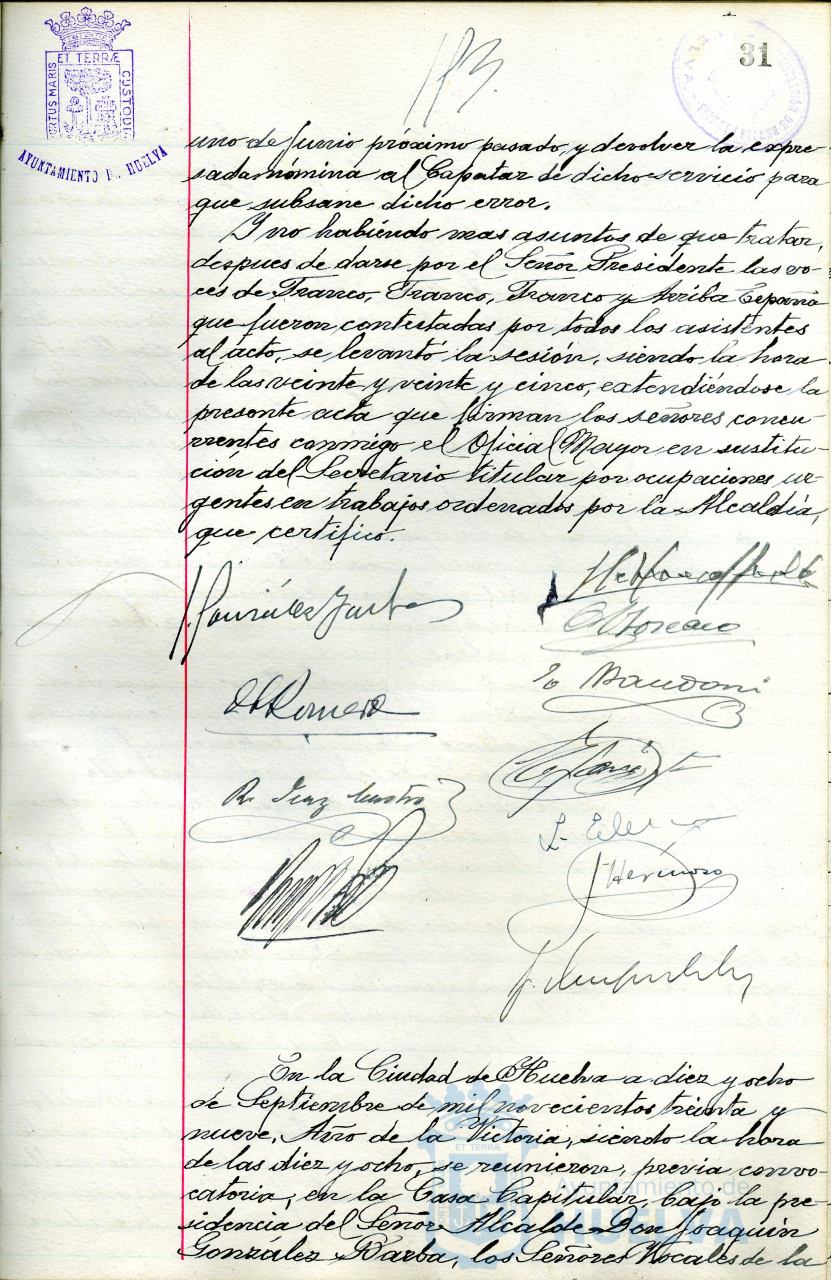 ET TERRÆ
PORTUS MARIS
CUSTODIA
AYUNTAMIENTO DE HUELVA
31
uno de Junio próximo pasado, y devolver la expre-
sada nómina al Capataz de dicho servicio para
que subsane dicho error.
Y no habiendo mas asuntos de que tratar,
despues de darse por el Señor Presidente las vo-
ces de Franco, Franco, Franco y Arriba España
que fueron contestadas por todos los asistentes
al acto, se levantó la sesión, siendo la hora
de las veinte y veinte y cinco, extendiéndose la
presente acta que firman los señores concu-
rrentes conmigo el Oficial Mayor en sustitu-
ción del Secretario titular por ocupaciones ur-
gentes en trabajos ordenados por la Alcaldía,
que certifico.
J. González Barba
Romero
R. Diaz
J Hermoso
En la Ciudad de Huelva a diez y ocho
de Septiembre de mil novecientos treinta y
nueve, Año de la Victoria, siendo la hora
de las diez y ocho, se reunieron, previa convo-
catoria, en la Casa Capitular, bajo la pre-
sidencia del Señor Alcalde Don Joaquín
González Barba, los Señores Vocales de la
Ayuntamiento de
HUELVA